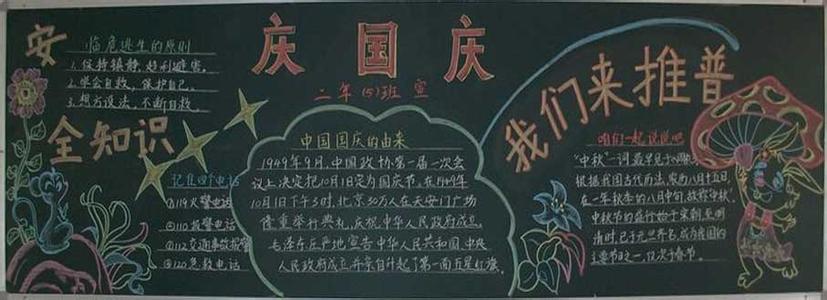 安
全知识
临危逃生的原则
1. 保持镇静，趋利避害。
2. 学会自救，保护自己。
3. 想方设法，不断自救。
记住四个电话
①119火警电话
②110报警电话
③112交通事故报警
④120急救电话
庆国庆
二年(5)班 宣
中国国庆的由来
1949年9月，中国政协第一届一次会
议上决定把10月1日定为国庆节。在1949年
10月1日下午3时，北京30万人在天安门广场
隆重举行典礼，庆祝中华人民政府成立。
毛泽东庄严地宣告中华人民共和国，中央
人民政府成立并亲自升起了第一面五星红旗。
我们来推普
咱们一起说说吧
"中秋"一词最早见于
根据我国古代历法，农历八月十五日
在一年秋季的八月中旬，故称中秋。
中秋节的盛行始于宋朝，至明
清时，已于元旦齐名，成为我国的
主要节日之一，仅次于春节。